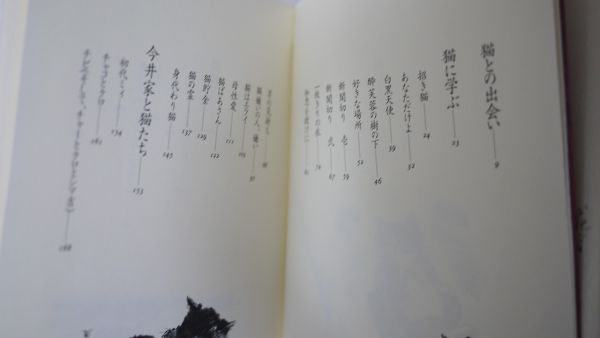 猫との出会い——9
猫に学ぶ——23
招き猫——24
あなただけよ——32
白黒天使——39
酔芙蓉の樹の下——46
好きな場所——52
新聞切り 壱——59
新聞切り 弐——67
母性愛——111
猫ばあさん——122
猫貯金——129
猫の霊——137
身代わり猫——145
今井家と猫たち——153
初代ミイ——154
チャコとクロ——161
168